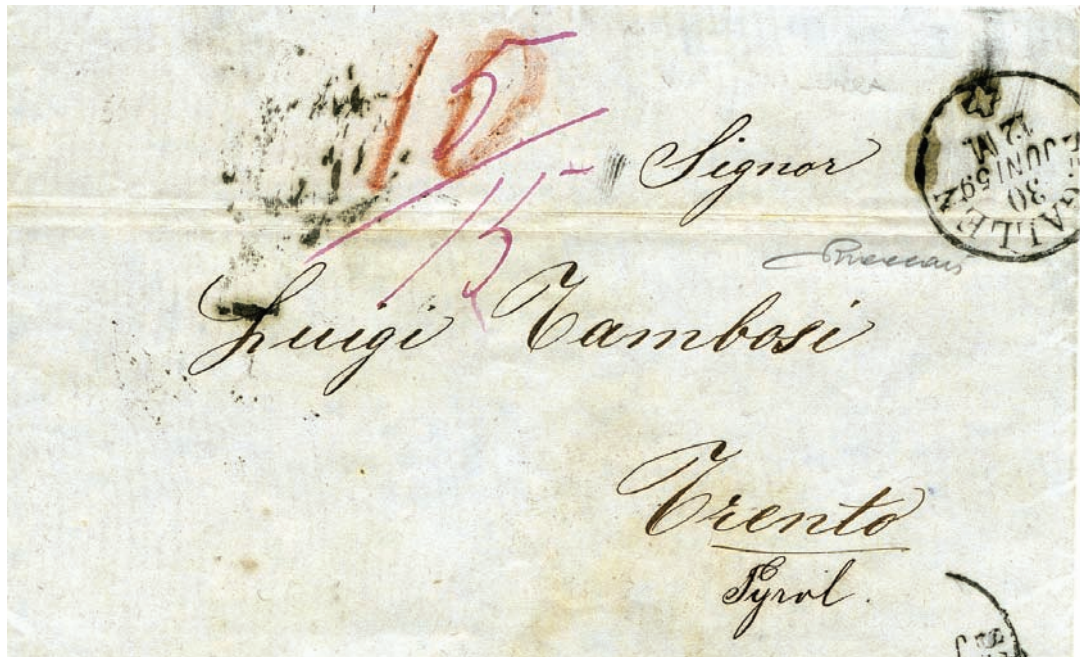 10
5
15
Signor
Luigi Tambosi
Trento
Tyrol.
GALLEN
30
JUNI 59
12 M.